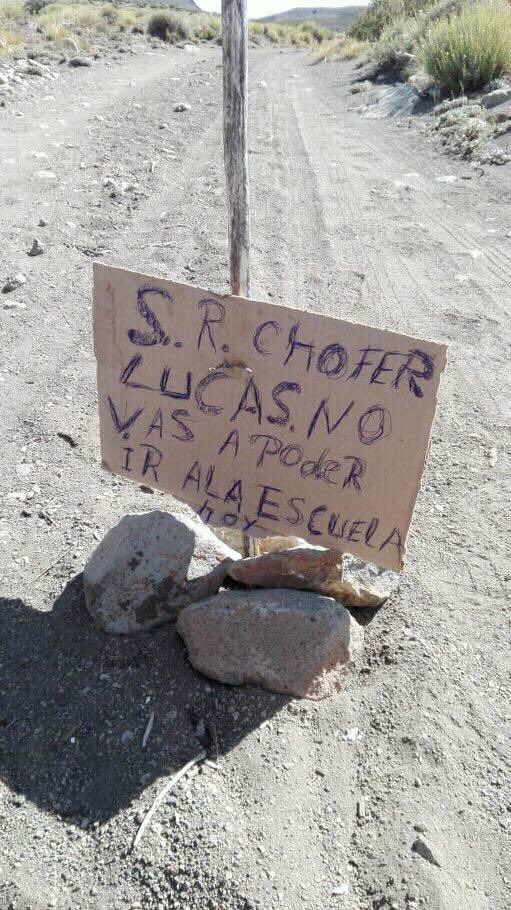 S.. R. CHOFER
LUCAS. NO
VAS A PODER
IR ALA ESCUELA
hoy